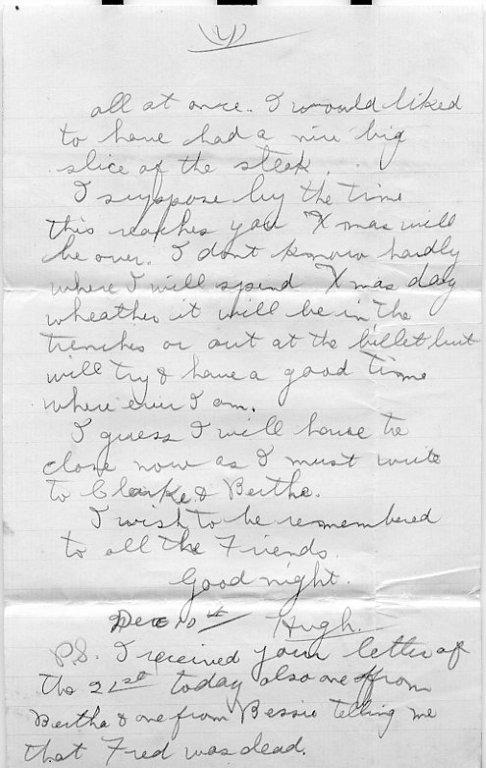 (4)
all at once. I would liked
to have had a nice big
slice of the steek.
I suppose by the time
this reaches you Xmas will
be over. I dont know hardly
where I will spend Xmas day
wheather it will be in the
trenches or out at the billet but
will try & have a good time
where ever I am.
I guess I will have to
close now as I must write
to Clarke & Bertha.
I wish to be remembered
to all the Friends.
Good night.
Dec 10th Hugh.
P.S. I received your letter of
the 21st today also one from
Bertha & one from Bessie telling me
that Fred was dead.